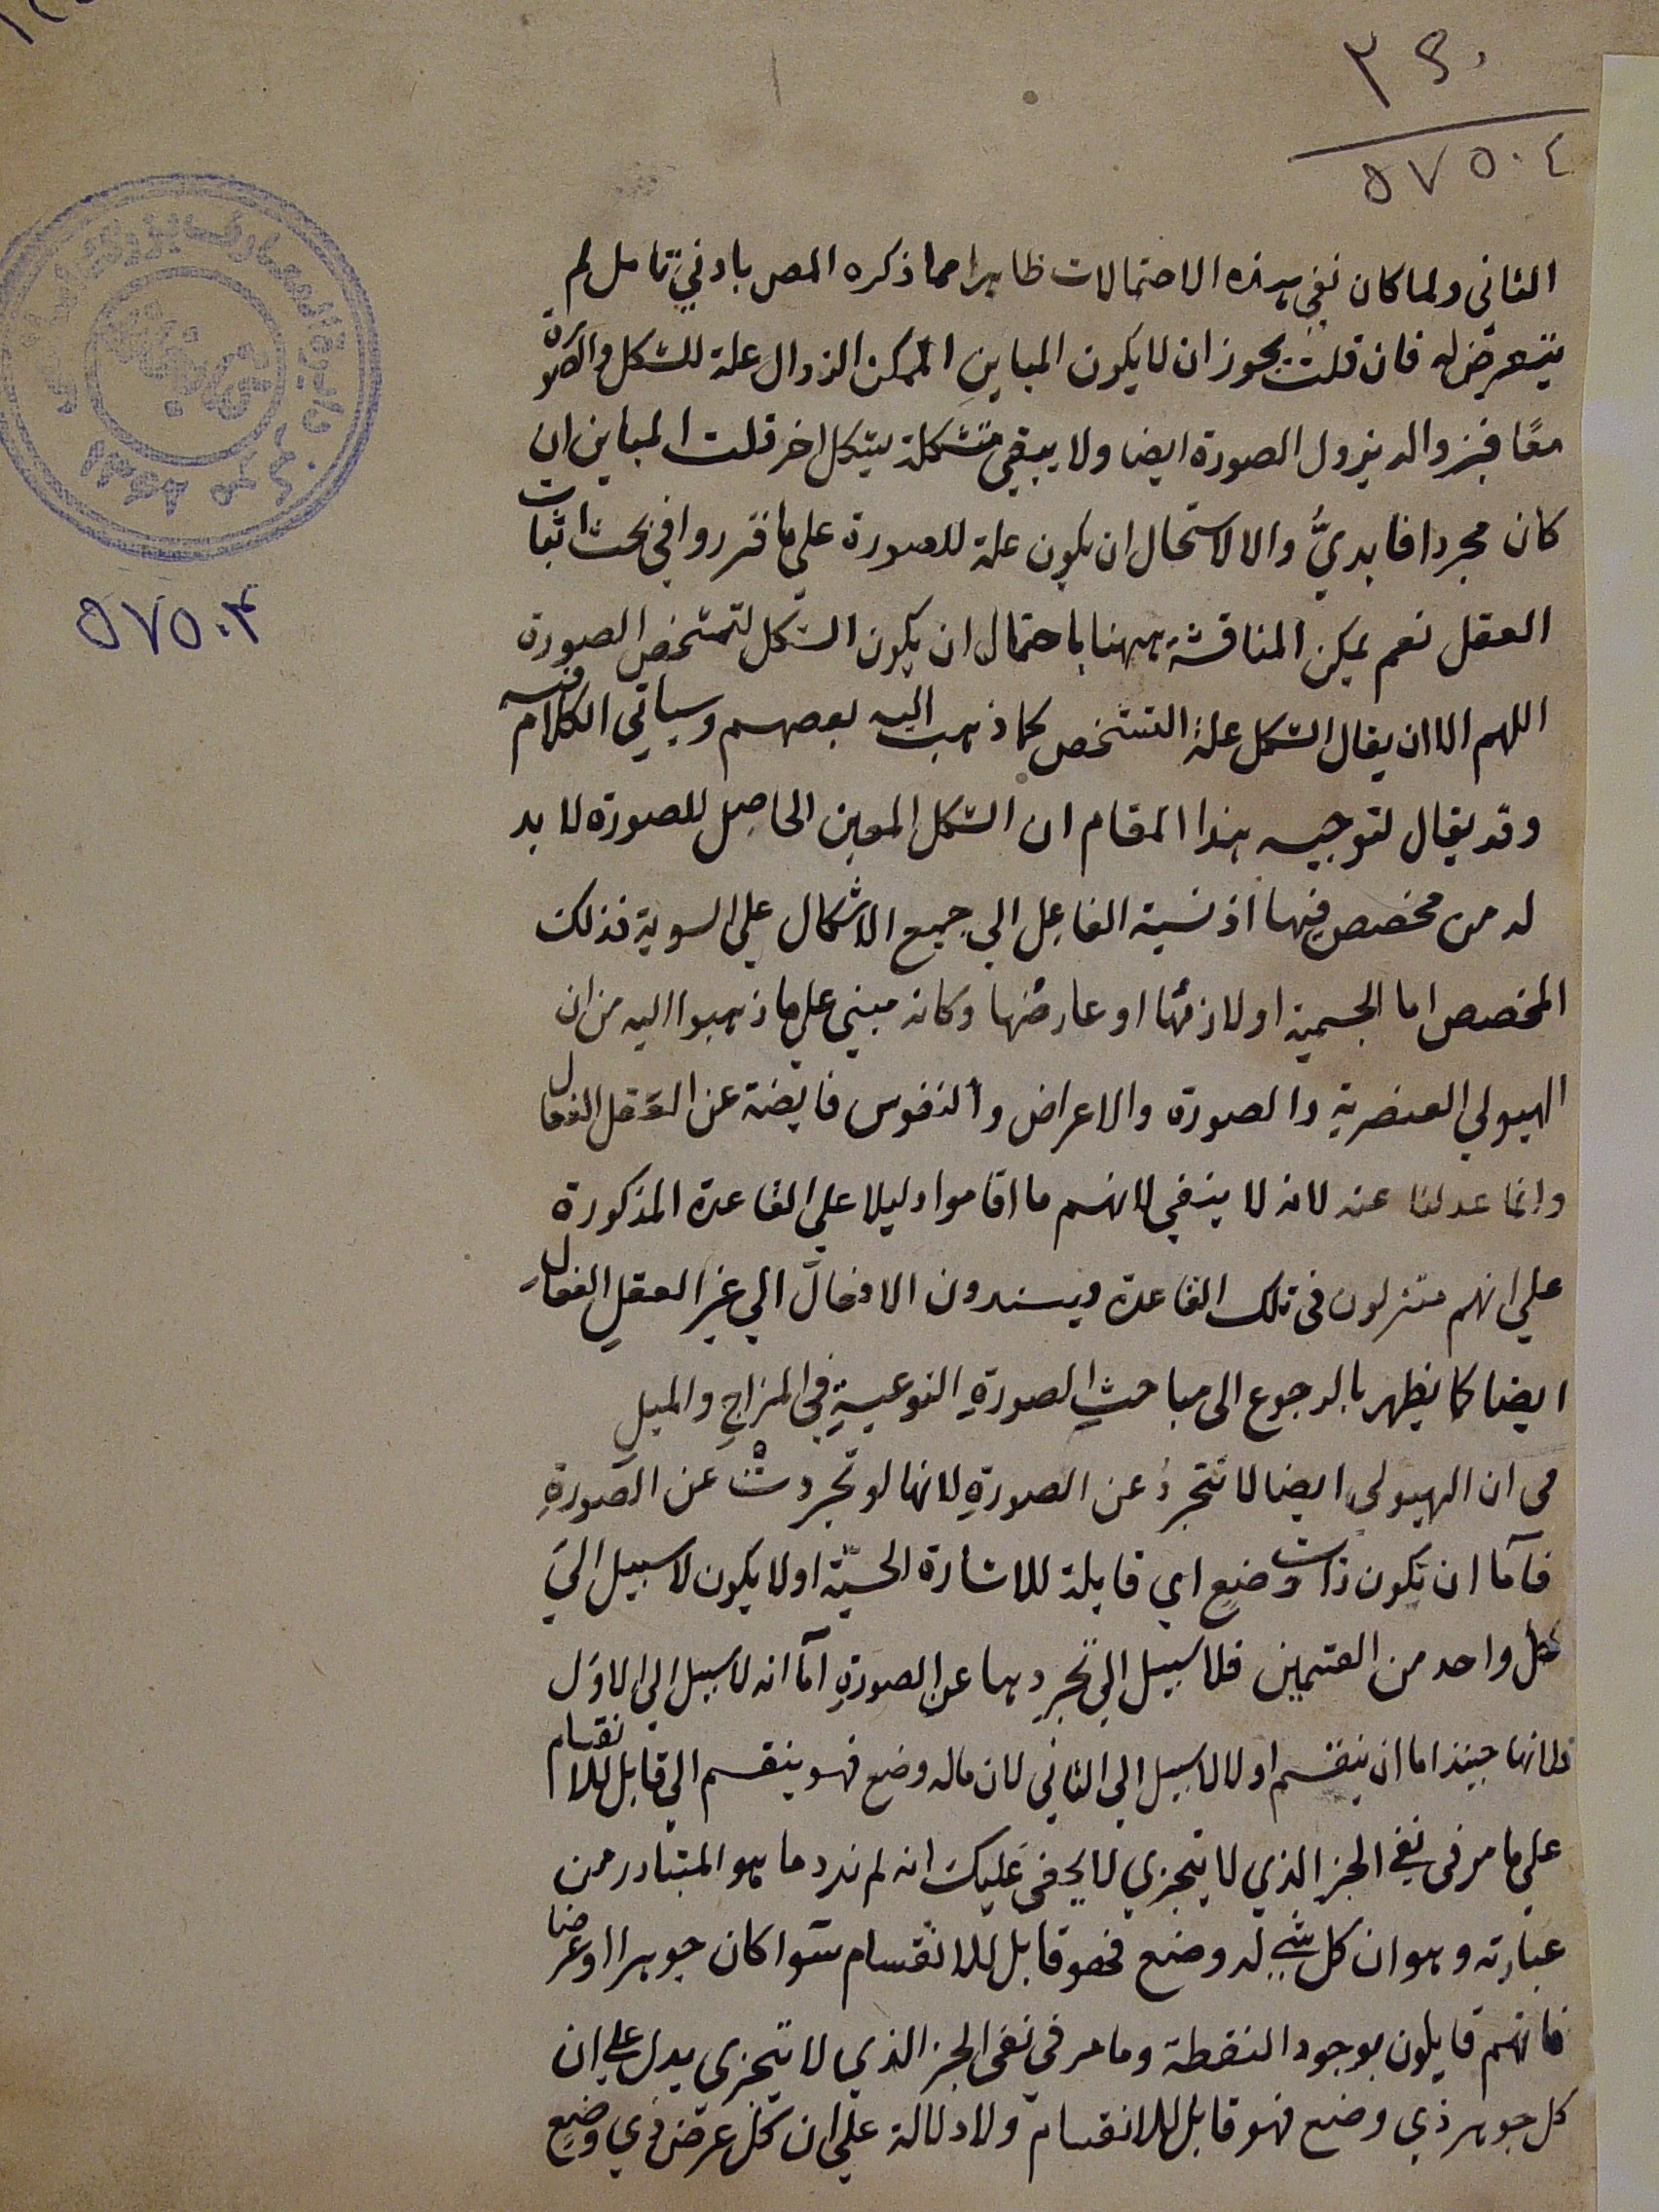 ٣٩٠
٥٧٥٠٤
٥٧٥٠۴
الثانى ولما كان نفى هذه الاحتمالات ظاهرا مما ذكره المص بادنى تامل لم
يتعرض له فان قلت يجوز ان لا يكون المباين الممكن الزوال علة للشكل والصورة
معًا فبزواله يزول الصورة ايضا ولا يبقى متشكلة بشكل اخر قلت المباين ان
كان مجردا فابديٌّ والا لاستحال ان يكون علة للصورة على ما قرروا فى بحث اثبات
العقل نعم يمكن المناقشة ههنا باحتمال ان يكون الشكل لتشخص الصورة
اللهم الا ان يقال الشكل علة التشخص كما ذهب اليه بعضهم وسياتى الكلام فيه
وقد يقال لتوجيه هذا المقام ان الشكل المعين الحاصل للصورة لا بد
له من مخصص فيها اذ نسبة الفاعل الى جميع الاشكال على السوية فذلك
المخصص اما الجسمية او لازمها او عارضها وكانه مبنى على ما ذهبوا اليه من ان
الهيولى العنصرية والصورة والاعراض والنفوس فايضة عن العقل الفعال
وانما عدلنا عنه لانه لا ينفى لانهم ما اقاموا دليلا على القاعدة المذكورة
على انهم متزلزلون فى تلك القاعدة ويسندون الافعال الى غير العقل الفعال
ايضا كما يظهر بالرجوع الى مباحث الصورةِ النوعيةِ فى المزاجِ والميلِ
فى ان الهيولى ايضا لا تتجردُ عن الصورةِ لانها لو تجردتْ عن الصورةِ
فامّا ان تكون ذات وضعٍ اى قابلة للاشارة الحسيّة او لا يكون لا سبيل الى
كل واحد من القسمين فلا سبيل الى تجردها عن الصورة امّا انه لا سبيل الى الاوّل
فلانها حينئذ اما ان ينقسم او لا لا سبيل الى الثانى لان ماله وضع فهو ينقسم الى قابل للانقسام
على ما مر فى نفى الجز الذي لا يتجزى لا يخفى عليك انه لم يرد ما هو المتبادر من
عبارته وهو ان كل شئ له وضع فهو قابل للانقسام سوآ كان جوهرا او عرضا
فانهم قايلون بوجود النقطة وما مر فى نفى الجز الذي لا يتجزى يدل على ان
كل جوهر ذي وضع فهو قابل للانقسام ولا دلالة على ان كل عرض ذي وضع